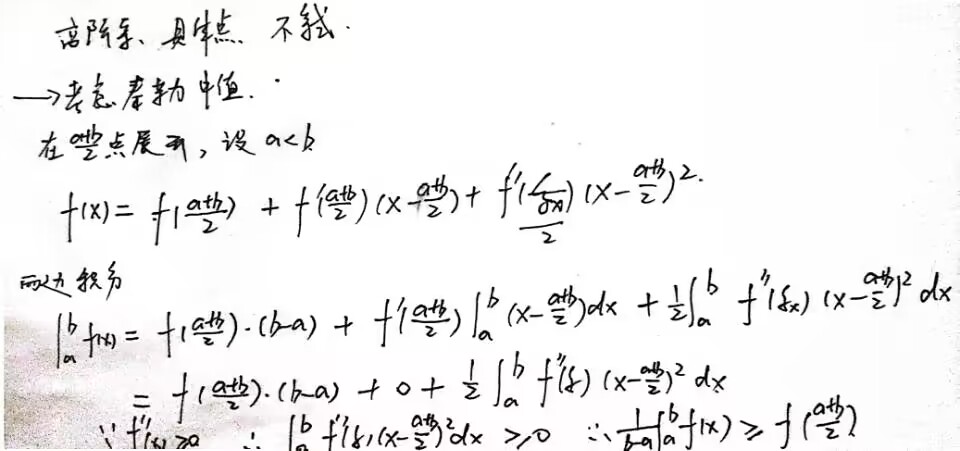 高阶导、具体点、不等式.
→考虑泰勒中值.
在 (a+b)/2 点展开, 设 a<b
f(x) = f((a+b)/2) + f'((a+b)/2) (x-(a+b)/2) + f''(ξx)/2 (x-(a+b)/2)².
两边积分
∫_a^b f(x) = f((a+b)/2)·(b-a) + f'((a+b)/2) ∫_a^b (x-(a+b)/2)dx + 1/2 ∫_a^b f''(ξx) (x-(a+b)/2)² dx
= f((a+b)/2)·(b-a) + 0 + 1/2 ∫_a^b f''(ξ) (x-(a+b)/2)² dx
∵ f''(x)≥0 ∴ ∫_a^b f''(ξ)(x-(a+b)/2)²dx ≥0 ∴ 1/(b-a) ∫_a^b f(x) ≥ f((a+b)/2)